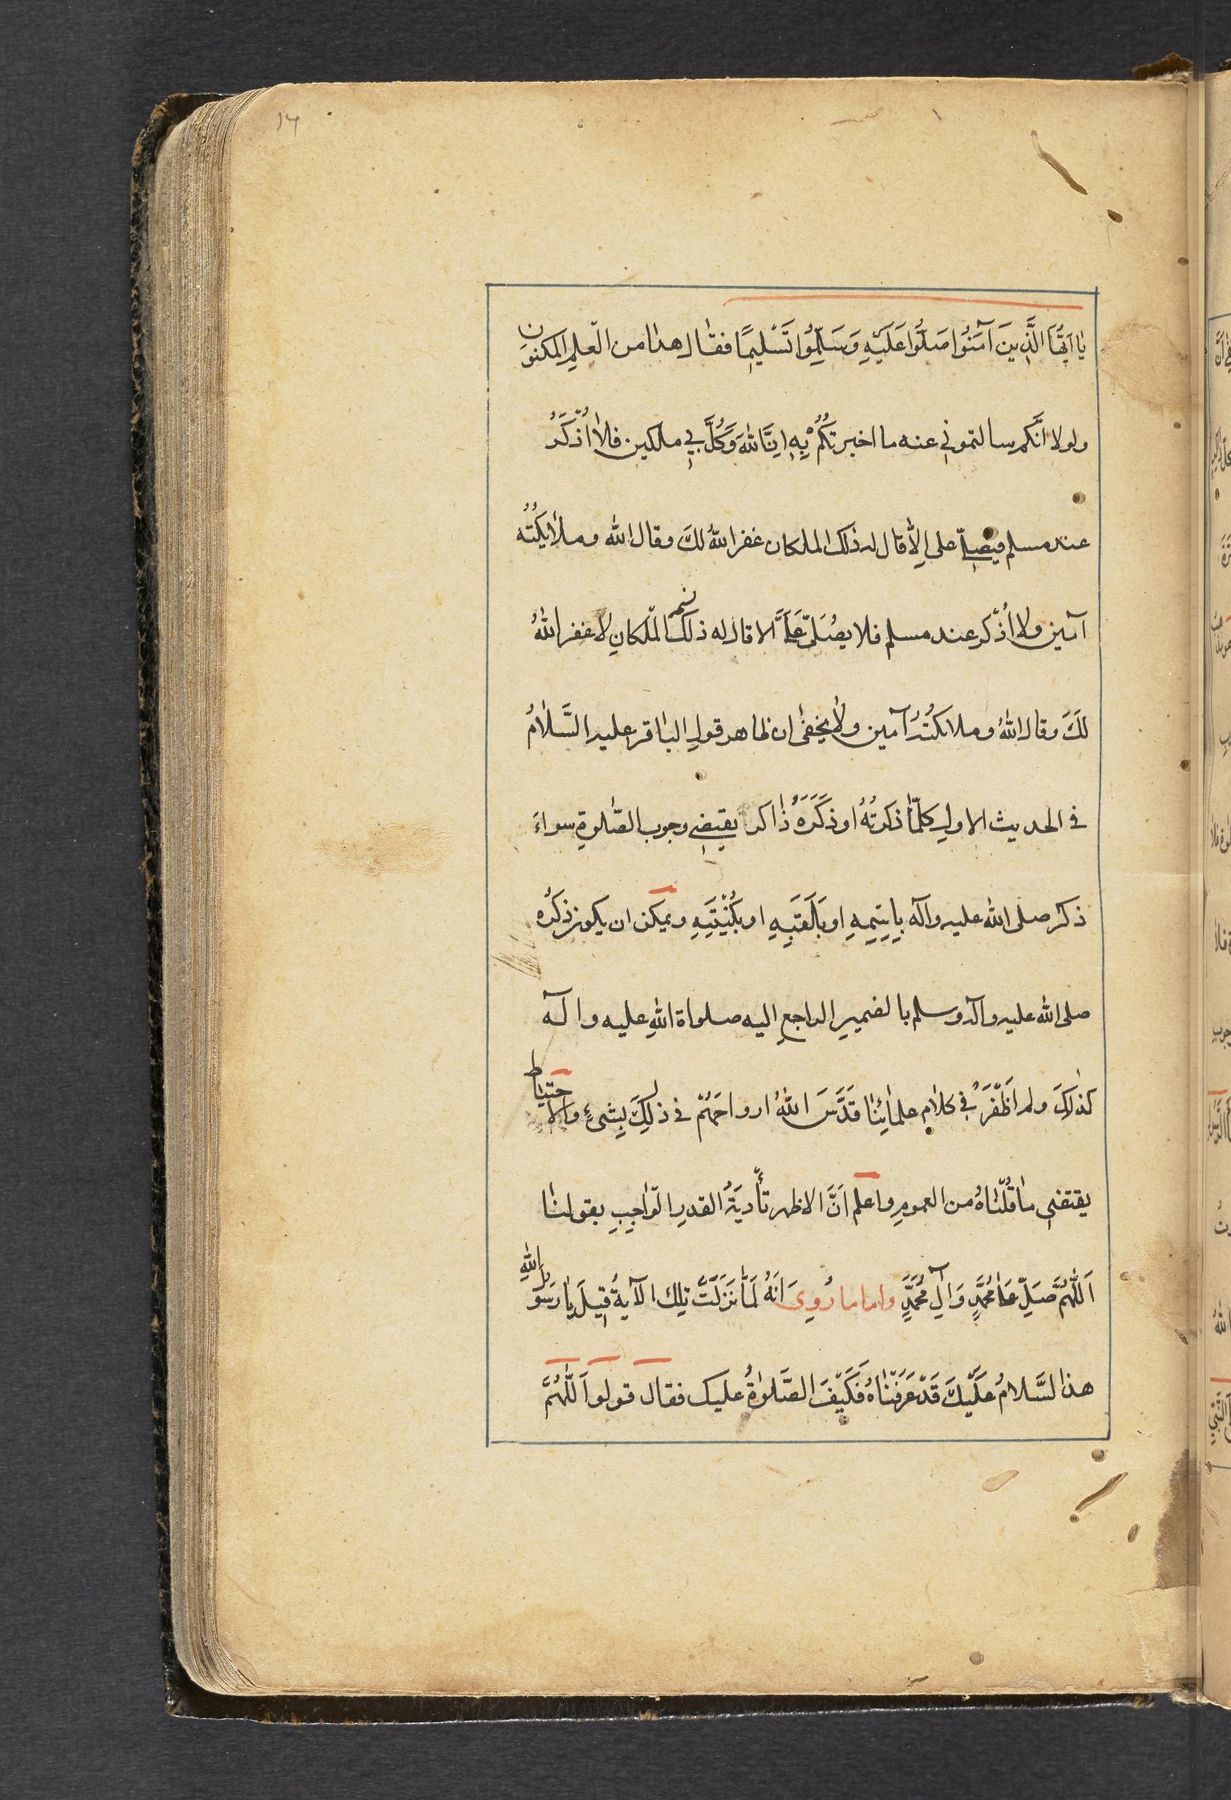 ١٦
يٰا اَيُّهَا الَّذِينَ آمَنُوا صَلُّوا عَلَيْهِ وَسَلِّمُوا تَسْلِيمًا فقٰال هذٰا من الْعلمِ المكنون
ولولا انَّكم سالتمونى عنه ما اخبرتكُمْ بِهِ اِنَّ اللهَ وَكَّلَ بِي ملكين فلاٰ اُذْكَرُ
عند مسلم فيصلّى على اِلّٰا قال له ذلك الملكان غفر اللهُ لكَ وقال الله وملاٰئِكَتُهُ
آمين ولا اُذْكر عند مسلم فلا يصُلّى عَلَىَّ الا قال له ذلك الملكانِ لاٰ غفر اللهُ
لَكَ وقال اللهُ وملائكتُهُ آمين ولاٰ يخفىٰ ان ظاهر قولِ البٰاقرِ عليه السَّلاٰمُ
فى الحديث الاولِ كلمّٰا ذكرتَهُ او ذكَرَهُ ذٰاكر يقتضى وجوب الصّلوةِ سواءَ
ذكر صلى الله عليه وآله بِاِسْمِهِ او بَلَقَبِهِ او بكُنْيَتِهِ ويمكن ان يكون ذكره
صلى الله عليه وآله وسلم بالضميرِ الراجعِ اليه صلواة اللهِ عليه وآله
كذٰلكَ ولم اَظْفَرْ فى كلاٰمِ علمٰائِنٰا قَدَّسَ اللهُ ارواحَهُمْ فى ذلِكَ بِشىءٍ والاحتيٰاط
يقتضى مٰا قُلْنٰاهُ من العمومِ واعلم اَنَّ الاظهر تأديَةُ القدرِ الْوٰاجِبِ بقولنٰا
اَللّٰهُمَّ صَلِّ عَلىٰ مُحَمَّدٍ وَآلِ مُحَمَّدٍ واما ما رُوِىَ اَنَهُ لَمّٰا نَزَلَتْ تِلك الآيةُ قيلَ يٰا رسول اللهِ
هذا السَّلامُ عَلَيْكَ قَدْ عَرَفْنٰاهُ فَكَيْفَ الصَّلوٰةُ عليك فقال قولوا اَللّٰهُمَّ